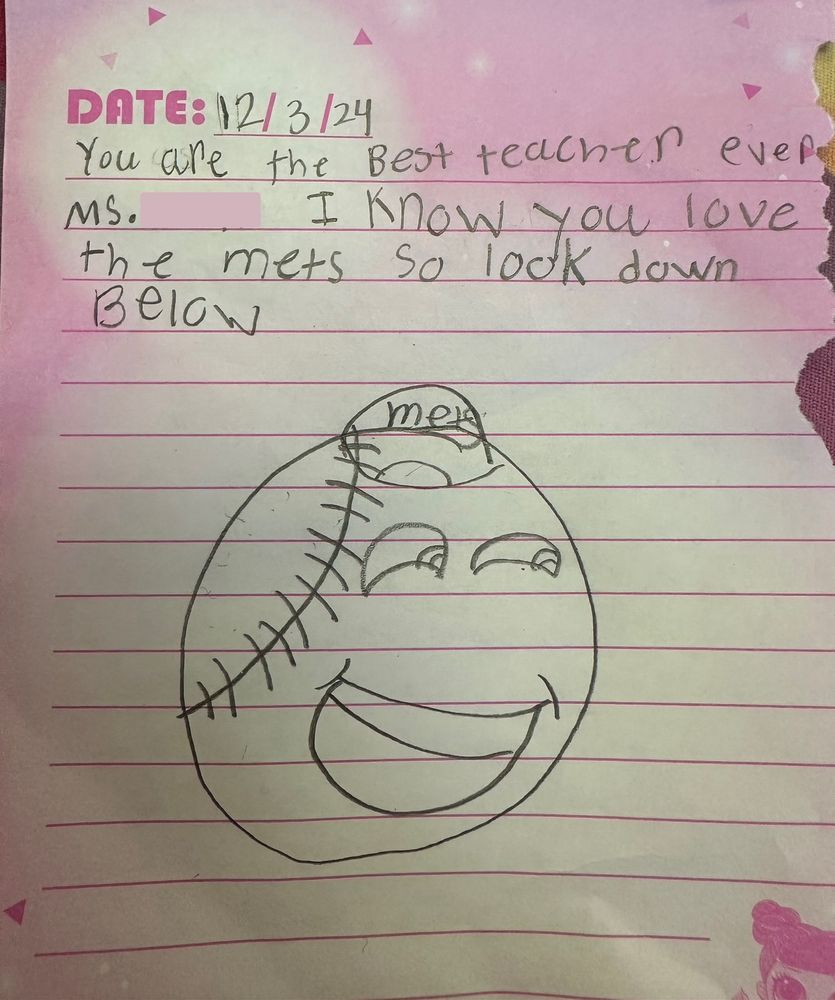 DATE: 12/3/24
You are the Best teacher ever
Ms. I know you love
the mets so look down
Below
mets